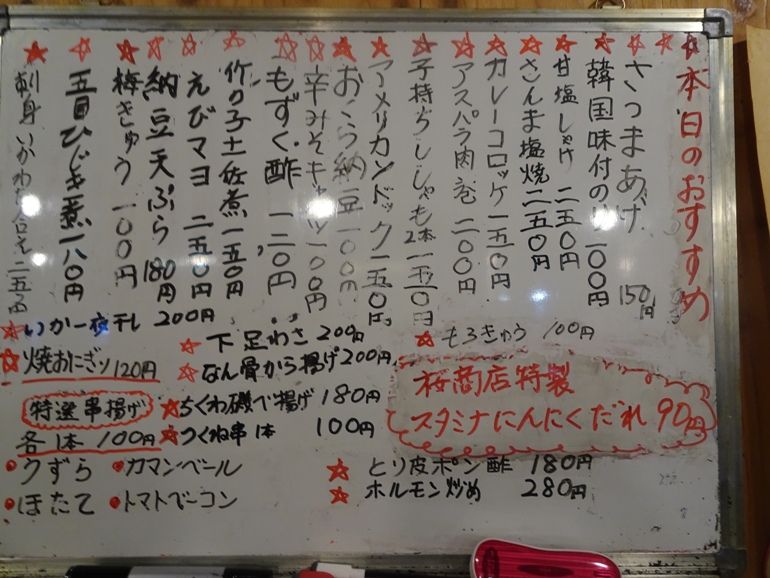 本日のおすすめ
さつまあげ 150円
韓国味付のり 一〇〇円
甘塩しゃけ 二五〇円
さんま塩焼 二五〇円
カレーコロッケ 一五〇円
アスパラ肉巻 二〇〇円
子持ちししゃも2本 一五〇円
アメリカンドック 一五〇円
おくら納豆 一〇〇円
辛みそキャベツ 一〇〇円
もずく酢 一二〇円
竹の子土佐煮 一五〇円
えびマヨ 二五〇円
納豆天ぷら 180円
梅きゅう 一〇〇円
五目ひじき煮 一八〇円
刺身いかわた合え 二五〇円
いか一夜干し 200円
焼おにぎり 120円
特選串揚げ
各1本 100円
うずら
カマンベール
ほたて
トマトベーコン
下足わさ 200円
なん骨から揚げ 200円
ちくわ磯べ揚げ 180円
つくね串1本 100円
もろきゅう 100円
桜商店特製
スタミナにんにくだれ 90円
とり皮ポン酢 180円
ホルモン炒め 280円